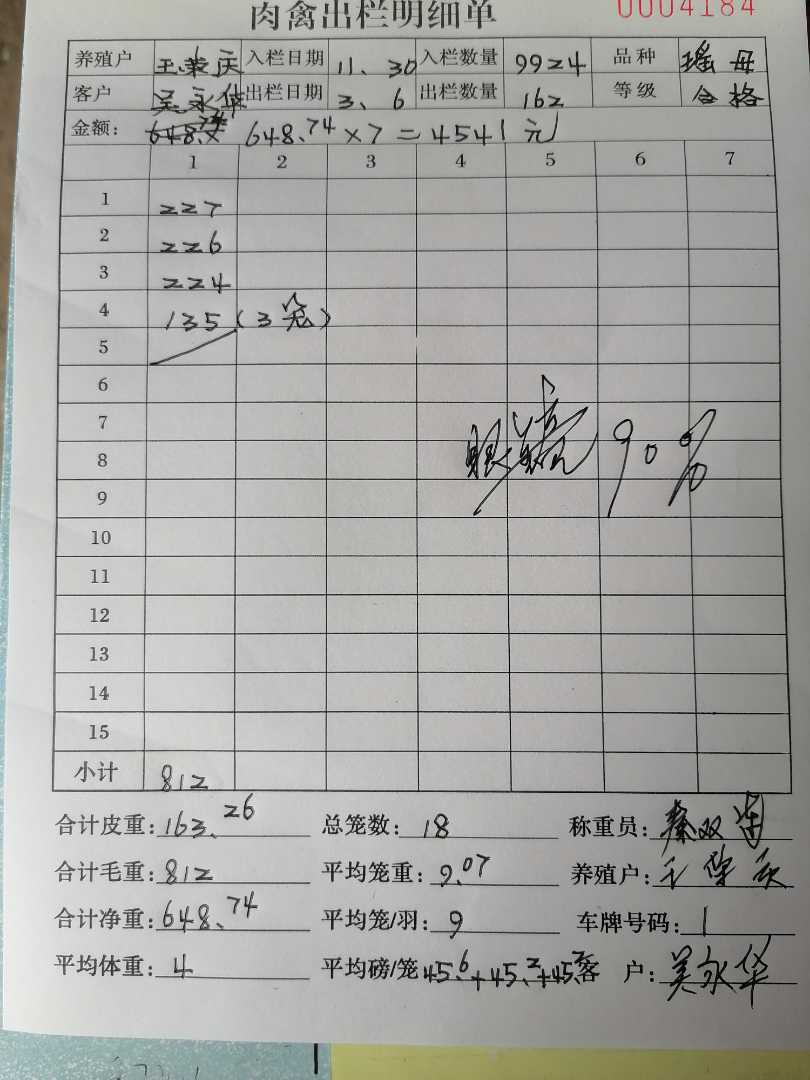 肉禽出栏明细单 0004184
养殖户 王荣庆 入栏日期 11、30 入栏数量 9924 品种 瑶母
客户 吴永华 出栏日期 3、6 出栏数量 162 等级 合格
金额: 648.74 648.74×7=4541元
1 2 3 4 5 6 7
1 227
2 226
3 224
4 135(3笼)
5
6
7
眼镜 90%
8
9
10
11
12
13
14
15
小计 812
合计皮重: 163.26 总笼数: 18 称重员: 秦双
合计毛重: 812 平均笼重: 9.07 养殖户: 王荣庆
合计净重: 648.74 平均笼/羽: 9 车牌号码: 1
平均体重: 4 平均磅/笼 45.6+45.2+45.2 客户: 吴永华